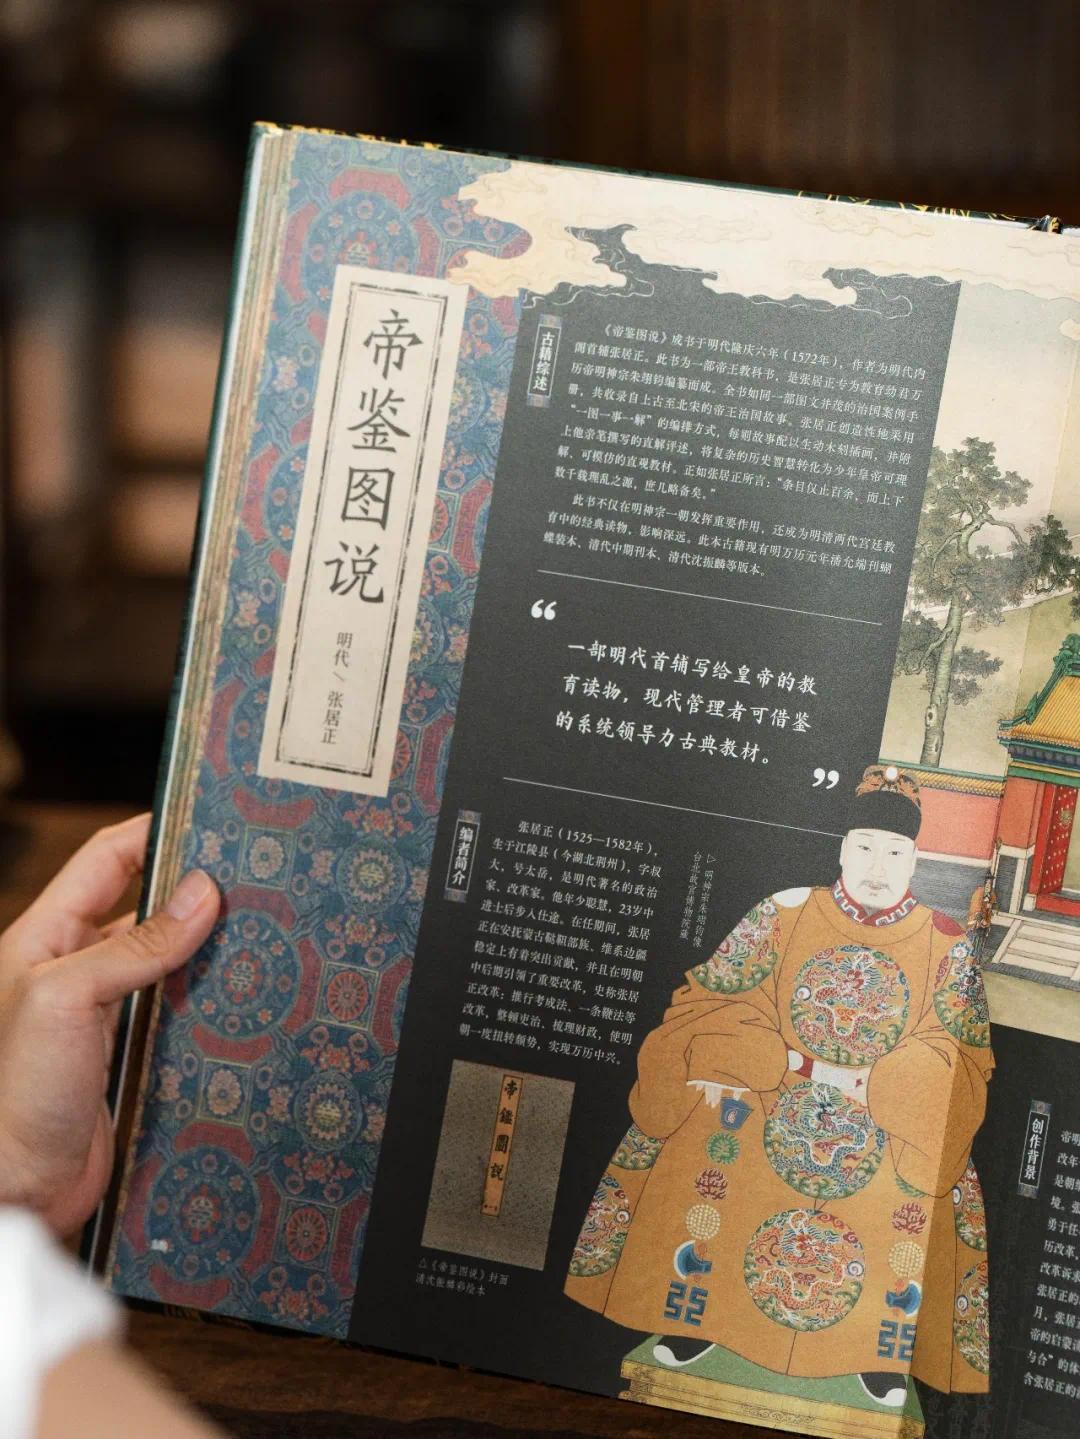 帝鉴图说
明代／张居正
古籍综述
《帝鉴图说》成书于明代隆庆六年（1572年），作者为明代内
阁首辅张居正。此书为一部帝王教科书，是张居正专为教育幼君万
历帝明神宗朱翊钧编纂而成。全书如同一部图文并茂的治国案例手
册，共收录自上古至北宋的帝王治国故事。张居正创造性地采用
“一图一事一解”的编排方式，每则故事配以生动木刻插画，并附
上他亲笔撰写的直解评述，将复杂的历史智慧转化为少年皇帝可理
解、可模仿的直观教材。正如张居正所言：“条目仅止百余，而上下
数千载理乱之源，庶几略备矣。”
此书不仅在明神宗一朝发挥重要作用，还成为明清两代宫廷教
育中的经典读物，影响深远。此本古籍现有明万历元年潘允端刊蝴
蝶装本、清代中期刊本、清代沈振麟等版本。
“
一部明代首辅写给皇帝的教
育读物，现代管理者可借鉴
的系统领导力古典教材。
”
编者简介
张居正（1525—1582年），
生于江陵县（今湖北荆州），字叔
大，号太岳，是明代著名的政治
家、改革家。他年少聪慧，23岁中
进士后步入仕途。在任期间，张居
正在安抚蒙古鞑靼部族、维系边疆
稳定上有着突出贡献，并且在明朝
中后期引领了重要改革，史称张居
正改革：推行考成法、一条鞭法等
改革，整顿吏治、梳理财政，使明
朝一度扭转颓势，实现万历中兴。
▷ 明神宗朱翊钧像
台北故宫博物院藏
帝鑑圖説
△《帝鉴图说》封面
清沈振麟彩绘本
创作背景
帝明
改年
是朝
境。张
勇于任
历改革，
改革诉
张居正的
月，张居
帝的启蒙
与合”的体
含张居正的